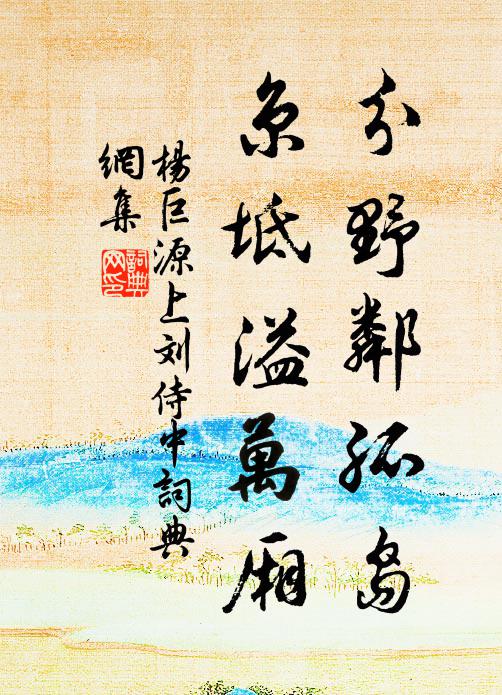 分野鄰孤島
京坻溢萬厢
楊巨源上刘侍中詞典
網集
詞典网印